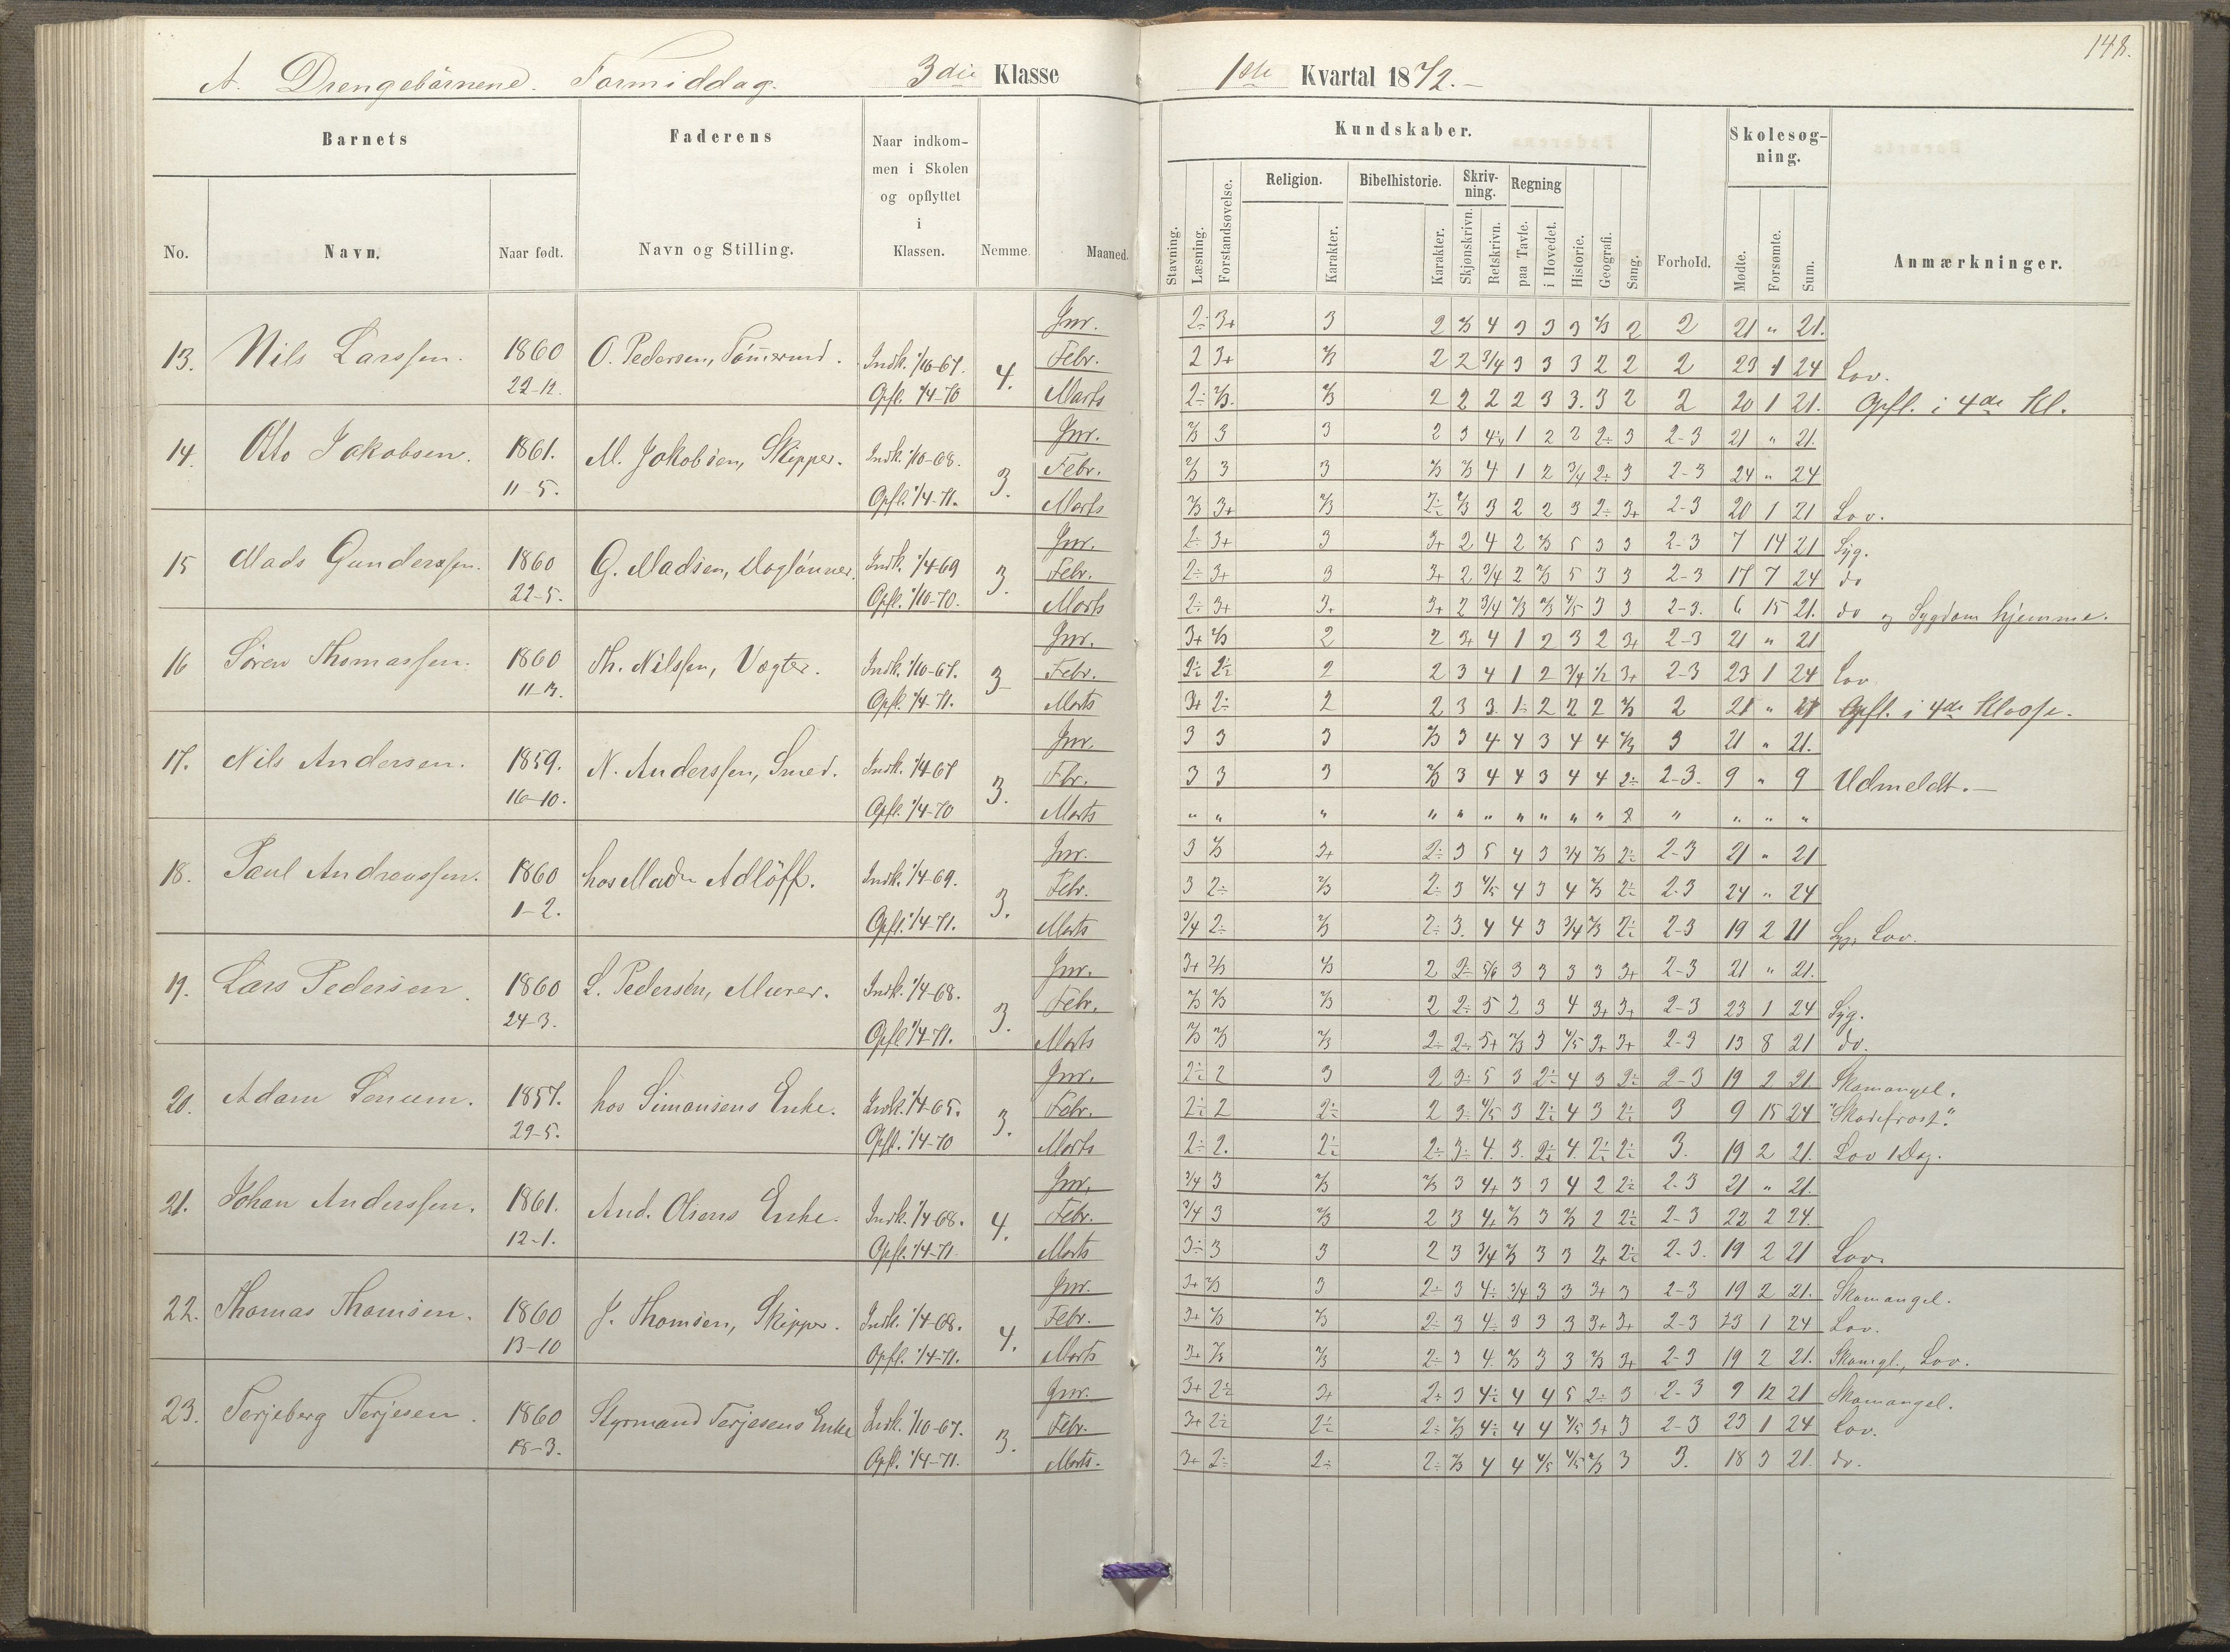 148.
A. Drengebørnene. Formiddag. 3die Klasse 1ste Kvartal 1872.-
Barnets Faderens Naar indkommen i Skolen og opflyttet i Klassen. Nemme. Maaned. Kundskaber. Skolesøgning.
No. Navn. Naar født. Navn og Stilling.
Stavning. Læsning. Forstandsøvelse. Religion. Karakter. Bibelhistorie. Karakter. Skrivning. Skjønskrivn. Retskrivn. Regning paa Tavle. i Hovedet. Historie. Geografi. Sang. Forhold. Mødte. Forsømte. Sum. Anmærkninger.
13. Nils Larssen. 1860 22-12. O. Pedersen, Tømmermd. Indk. 1/10-67. Opfl. 1/4-70 4.
Jnr. 2÷ 3+ 3 2 2/3 4 3 3 3 2/3 2 2 21 " 21.
Febr. 2 3+ 2/3 2 2 3/4 3 3 3 2 2 2 23 1 24 Lov.
Marts 2÷ 2/3. 2/3 2 2 2 2 3 3. 3 2 2 20 1 21. Opfl. i 4de Kl.
14. Otto Jakobsen. 1861. 11-5. M. Jakobsen, Skipper. Indk. 1/10-68. Opfl. 1/4-71. 3.
Jnr. 2/3 3 3 2 3 4÷ 1 2 2 2÷ 3 2-3 21 " 21.
Febr. 2/3 3 3 2/3 2/3 4 1 2 3/4 2÷ 3 2-3 24 " 24
Marts 2/3 3+ 2/3 2÷ 2/3 3 2 2 3 2÷ 3+ 2-3 20 1 21 Lov.
15 Mads Gunderssen. 1860 22-5. G. Madsen, Daglønner. Indk. 1/4-69 Opfl. 1/10-70. 3.
Jnr. 2÷ 3+ 3 3+ 2 4 2 2/3 5 3 3 2-3 7 14 21 Syg.
Febr. 2÷ 3+ 3 3+ 2 3/4 2 2/3 5 3 3 2-3 17 7 24 do
Marts 2÷ 3+ 3+ 3+ 2 3/4 2/3 2/3 4/5 3 3 2-3. 6 15 21. do og Sygdom hjemme.
16 Søren Thomassen. 1860 Th. Nilssen, Vægter. Indk. 1/10-67. Opfl. 1/4-71. 3
Jnr. 3+ 2/3 2 2 3+ 4 1 2 3 2 3+ 2-3 21 " 21
Febr. 2÷ 2÷ 2 2 3 4 1 2 3/4 1/2 3+ 2-3 23 1 24 Lov.
Marts 3+ 2÷ 2 2 3 3 1÷ 2 2 2 2/3 2 21 " 21 Opfl. i 4de Klasse.
17. Nils Andersen. 1859. 16-10. N. Anderssen, Smed. Indk. 1/4-67 Opfl. 1/4-70 3.
Jnr. 3 3 3 2/3 3 4 4 3 4 4 2/3 3 21 " 21.
Fbr. 3 3 3 2/3 3 4 4 3 4 4 2÷ 2-3. 9 " 9 Udmeldt.-
Marts " " " " " " " " " " " " " "
18. Paul Andreassen. 1860 1-2. hos Mad. Adløff. Indk. 1/4-69. Opfl. 1/4-71. 3.
Jnr. 3 2/3 3+ 2÷ 3 5 4 3 3/4 2/3 2÷ 2-3 21 " 21
Febr. 3 2÷ 2/3 2÷ 3 4/5 4 3 4 2/3 2÷ 2-3 24 " 24
Marts 3/4 2÷ 2/3 2÷ 3. 4 4 3 3/4 2/3 2÷ 2-3 19 2 21 Syg, Lov.
19. Lars Pedersen. 1860 24-3. L. Pedersen, Murer. Indk. 1/4-68. Opfl. 1/4-71. 3.
Jnr. 3+ 2/3 2/3 2 2÷ 5/6 3 3 3 3 3+ 2-3 21 " 21.
Febr. 2/3 2/3 2/3 2 2÷ 5 2 3 4 3+ 3+ 2-3 23 1 24 Syg.
Marts 2/3 2/3 2/3 2÷ 2÷ 5+ 2/3 3 4/5 3+ 3+ 2-3 13 8 21 do.
20. Adam 1857. 29-5. hos Simonsens Enke. Indk. 1/4-65. Opfl. 1/4-70 3.
Jnr. 2÷ 2 3 2 3÷ 5 3 2÷ 4 3 2÷ 2-3 19 2 21. Skomangel.
Febr. 2÷ 2 2÷ 2 3÷ 4/5 3 2÷ 4 3 2÷ 3 9 15 24 "Skadefrost".
Marts 2÷ 2. 2÷ 2÷ 3÷ 4. 3. 2÷ 4. 2÷ 2÷ 3. 19 2 21. Lov 1 Dag.
21. Johan Anderssen. 1861. 12-1. And. Olsens Enke. Indk. 1/4-68. Opfl. 1/4-71 4.
Jnr. 3/4 3 2/3 2/3 3 4+ 3 3 4 2 2÷ 2-3 21 " 21.
Febr. 3/4 3 2/3 2 3 4+ 2/3 3 2/3 2 2÷ 2-3 22 2 24.
Marts 3÷ 3 3 2 3 3/4 2/3 3 3 2+ 2÷ 2-3. 19 2 21 Lov.
22. Thomas Thomsen. 1860 13-10 J. Thomsen, Skipper. Indk. 1/4-68. Opfl. 1/4-71. 4.
Jnr. 3+ 2/3 3 2÷ 3 4÷ 3/4 3 3 3+ 3 2-3 19 2 21. Skomangel.
Febr. 3+ 2/3 2/3 2÷ 3 4÷ 3 3 3 3+ 3+ 2-3 23 1 24 Lov.
Marts 3+ 2/3 2/3 2÷ 3 4. 2/3 3 3 2/3 3+ 2-3 19 2 21. Skomgl., Lov.
23. Terjeberg Terjesen. 1860 18-3. Styrmand Terjesens Enke Indk. 1/10-67. Opfl. 1/4-71. 3.
Jnr. 3+ 2÷ 3+ 2÷ 3 4÷ 4 4 5 2÷ 3 2-3 9 12 21 Skomangel.
Febr. 3+ 2÷ 2÷ 2÷ 2/3 4÷ 4 4 4/5 3+ 3 2-3 23 1 24 Lov.
Marts. 3+ 2÷ 2÷ 2÷ 2/3 4 4 4/5 4/5 2/3 3 3. 18 3 21. do.